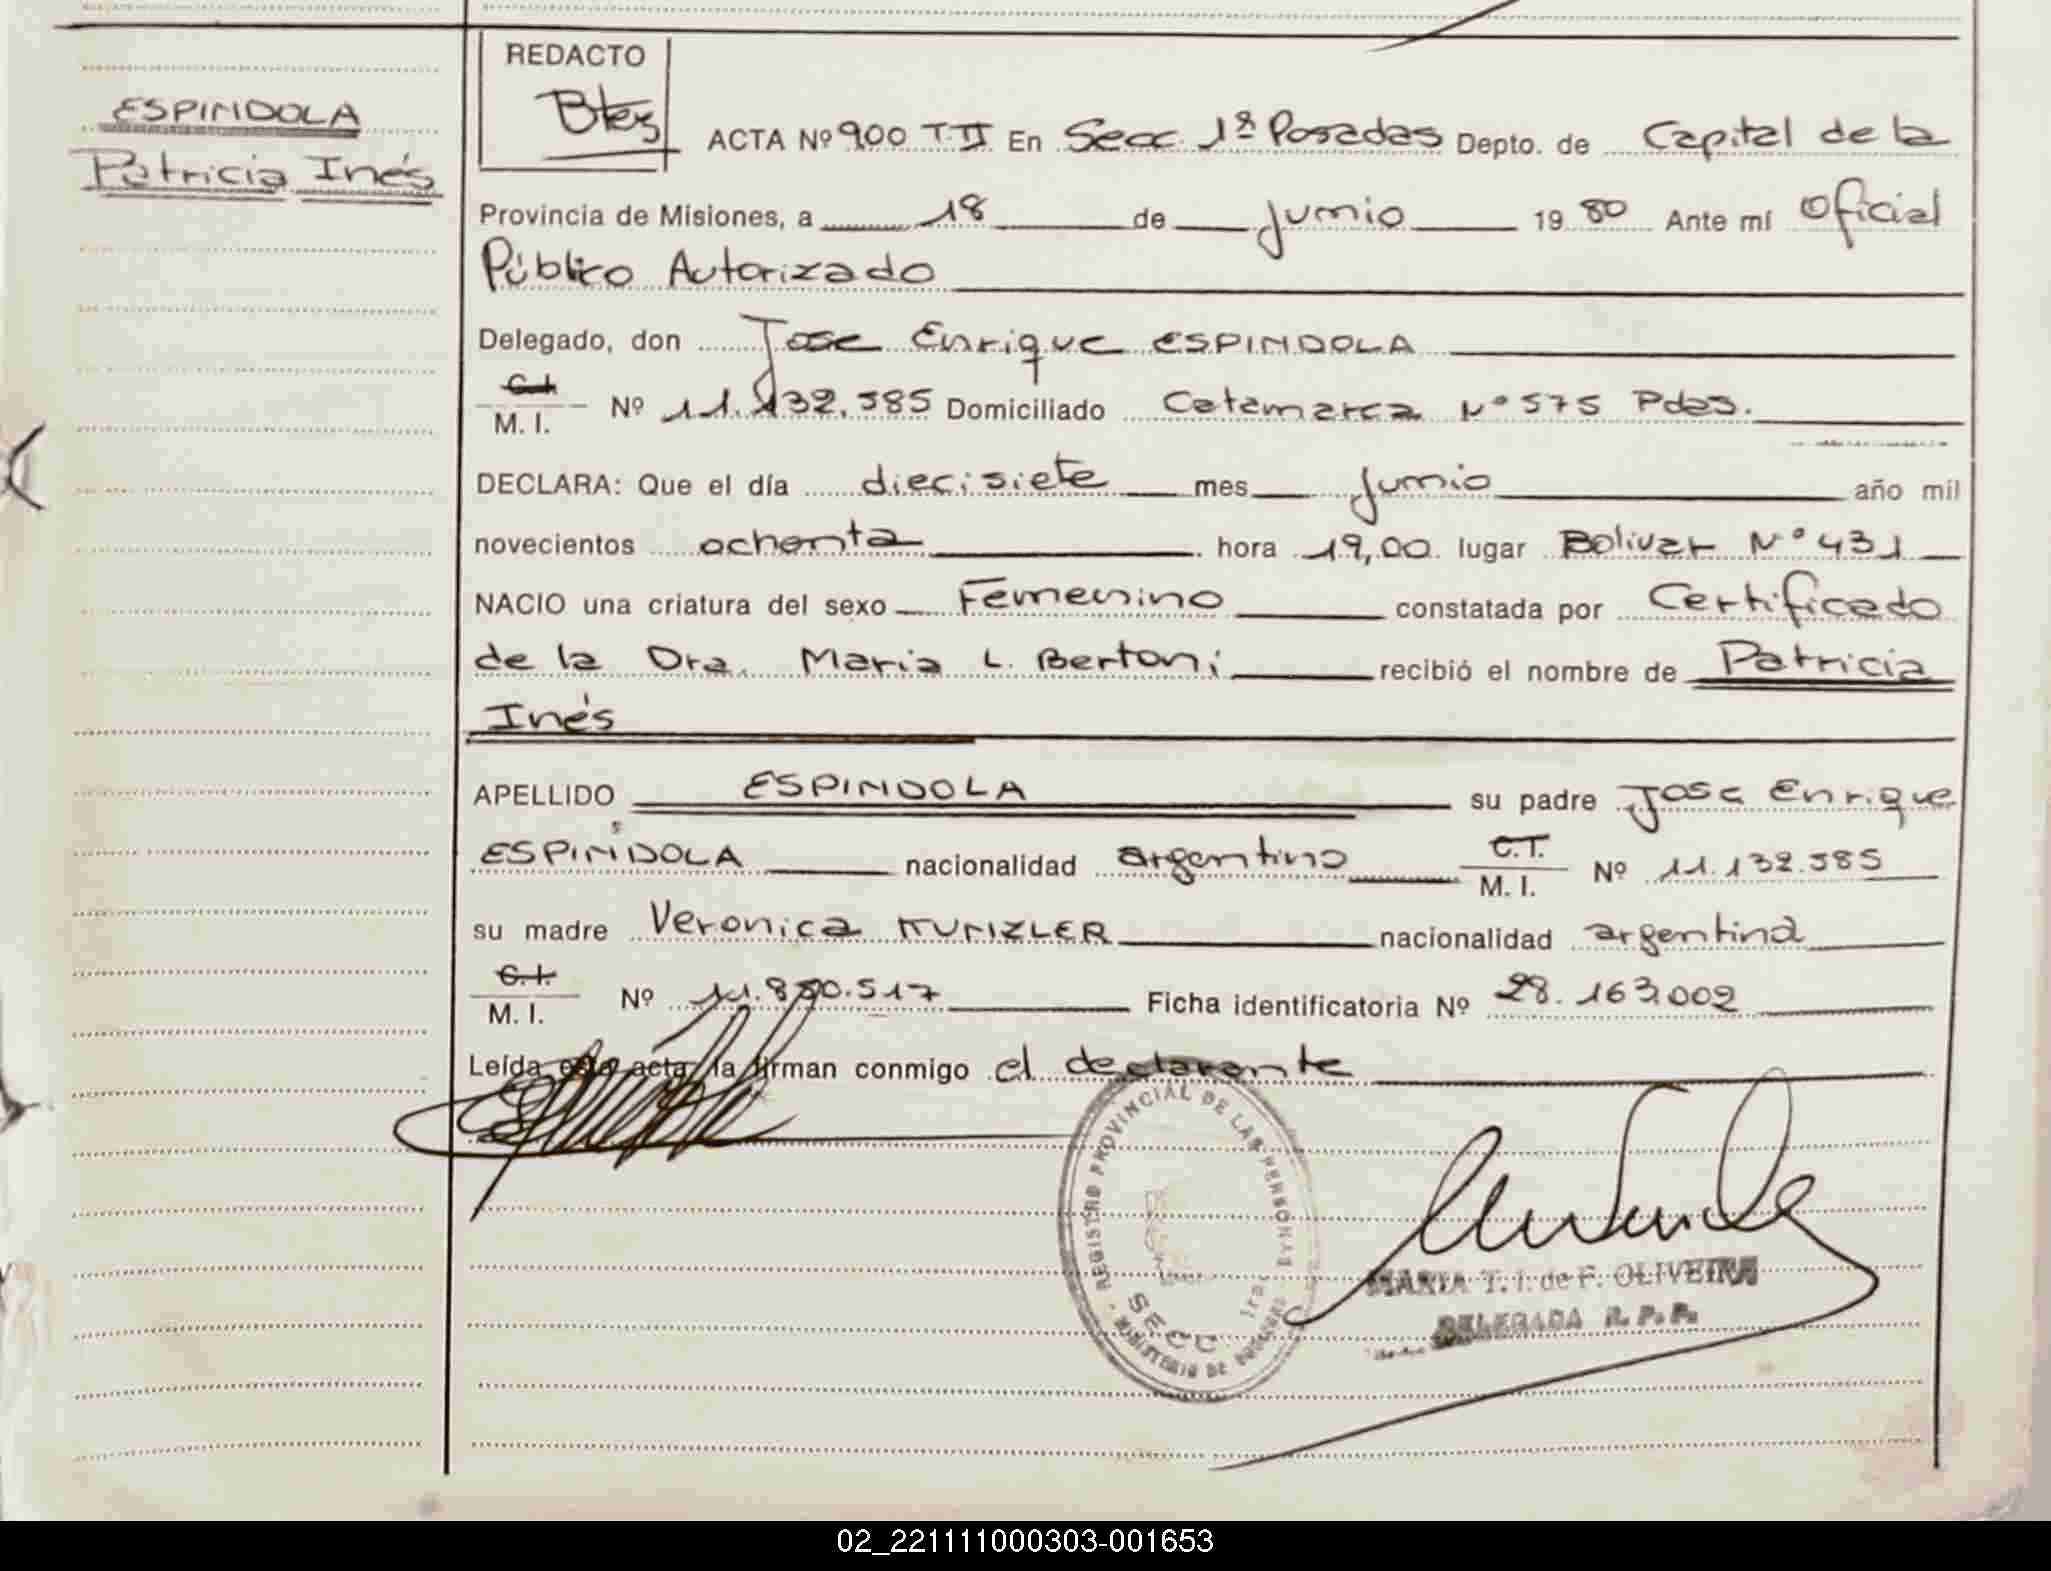 ESPINDOLA
Patricia Inés
REDACTO
Btes
ACTA Nº 900 T II En Secc. 1ª Posadas Depto. de Capital de la
Provincia de Misiones, a 18 de Junio 19 80 Ante mí Oficial
Público Autorizado
Delegado, don Jose Enrique ESPINDOLA
C.I.
M. I. Nº 11.132.585 Domiciliado Catamarca Nº 575 Pdas.
DECLARA: Que el día diecisiete mes Junio año mil
novecientos ochenta hora 19,00 lugar Bolivar Nº 431
NACIO una criatura del sexo Femenino constatada por Certificado
de la Dra. Maria L. Bertoni recibió el nombre de Patricia
Inés
APELLIDO ESPINDOLA su padre Jose Enrique
ESPINDOLA nacionalidad argentino C.I. M. I. Nº 11.132.585
su madre Veronica KUNZLER nacionalidad argentina
C.I.
M. I. Nº 11.880.517 Ficha identificatoria Nº 28.163.002
Leída esta acta, la firman conmigo el declarante
REGISTRO PROVINCIAL DE LAS PERSONAS
SECC. 1ra.
MINISTERIO DE GOBIERNO
MARIA T. I. de F. OLIVEIRA
DELEGADA R. P. P.
02_221111000303-001653